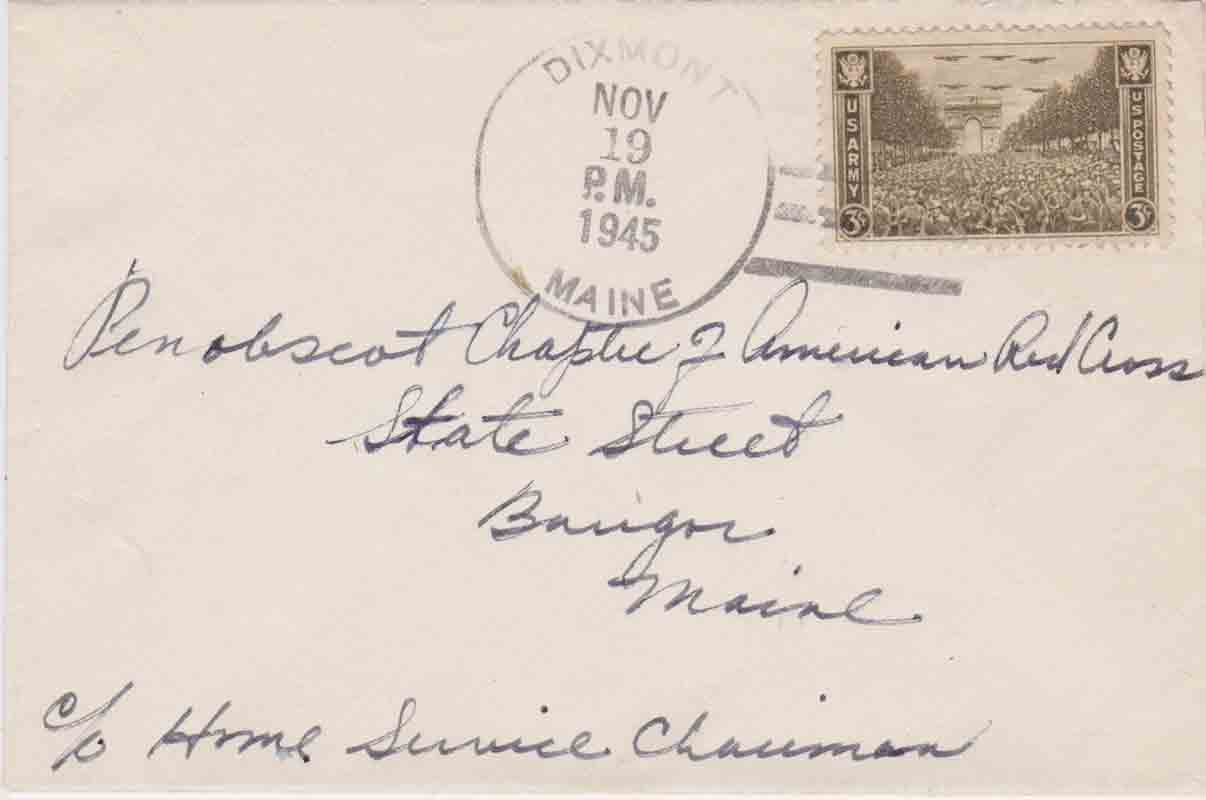 DIXMONT
NOV
19
P.M.
1945
MAINE
U S ARMY
U S POSTAGE
3¢
3¢
Penobscot Chapter of American Red Cross
State Street
Bangor
Maine
c/o Home Service Chairman